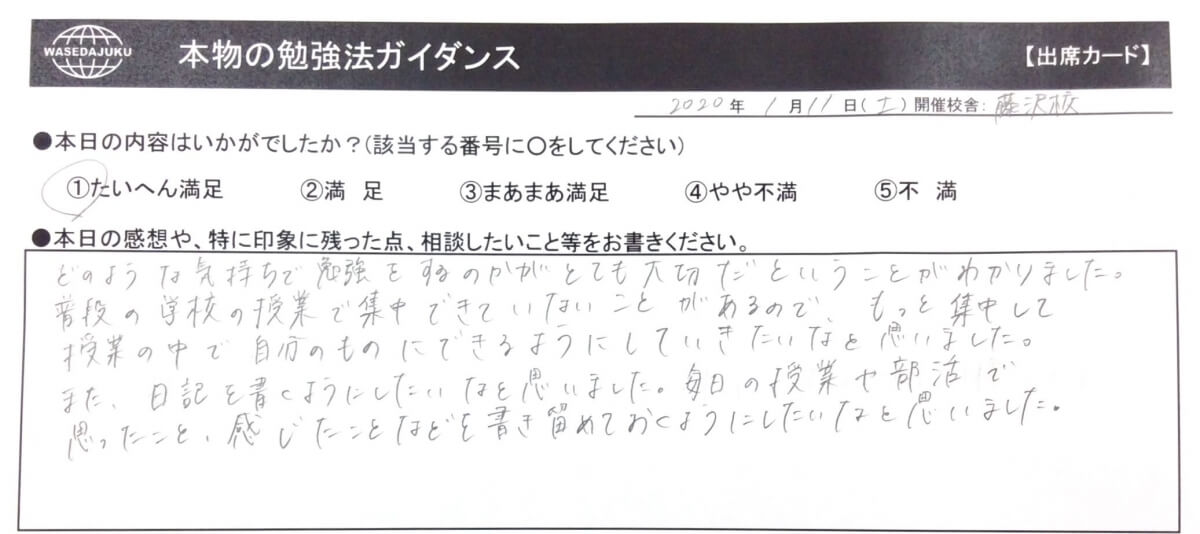 WASEDAJUKU
本物の勉強法ガイダンス 【出席カード】
2020年 1月11日(土)開催校舎:藤沢校
●本日の内容はいかがでしたか?(該当する番号に〇をしてください)
①たいへん満足 ②満 足 ③まあまあ満足 ④やや不満 ⑤不 満
●本日の感想や、特に印象に残った点、相談したいこと等をお書きください。
どのような気持ちで勉強をするのかがとても大切だということがわかりました。
普段の学校の授業で集中できていないことがあるので、もっと集中して
授業の中で自分のものにできるようにしていきたいなと思いました。
また、日記を書くようにしたいなと思いました。毎日の授業や部活で
思ったこと、感じたことなどを書き留めておくようにしたいなと思いました。